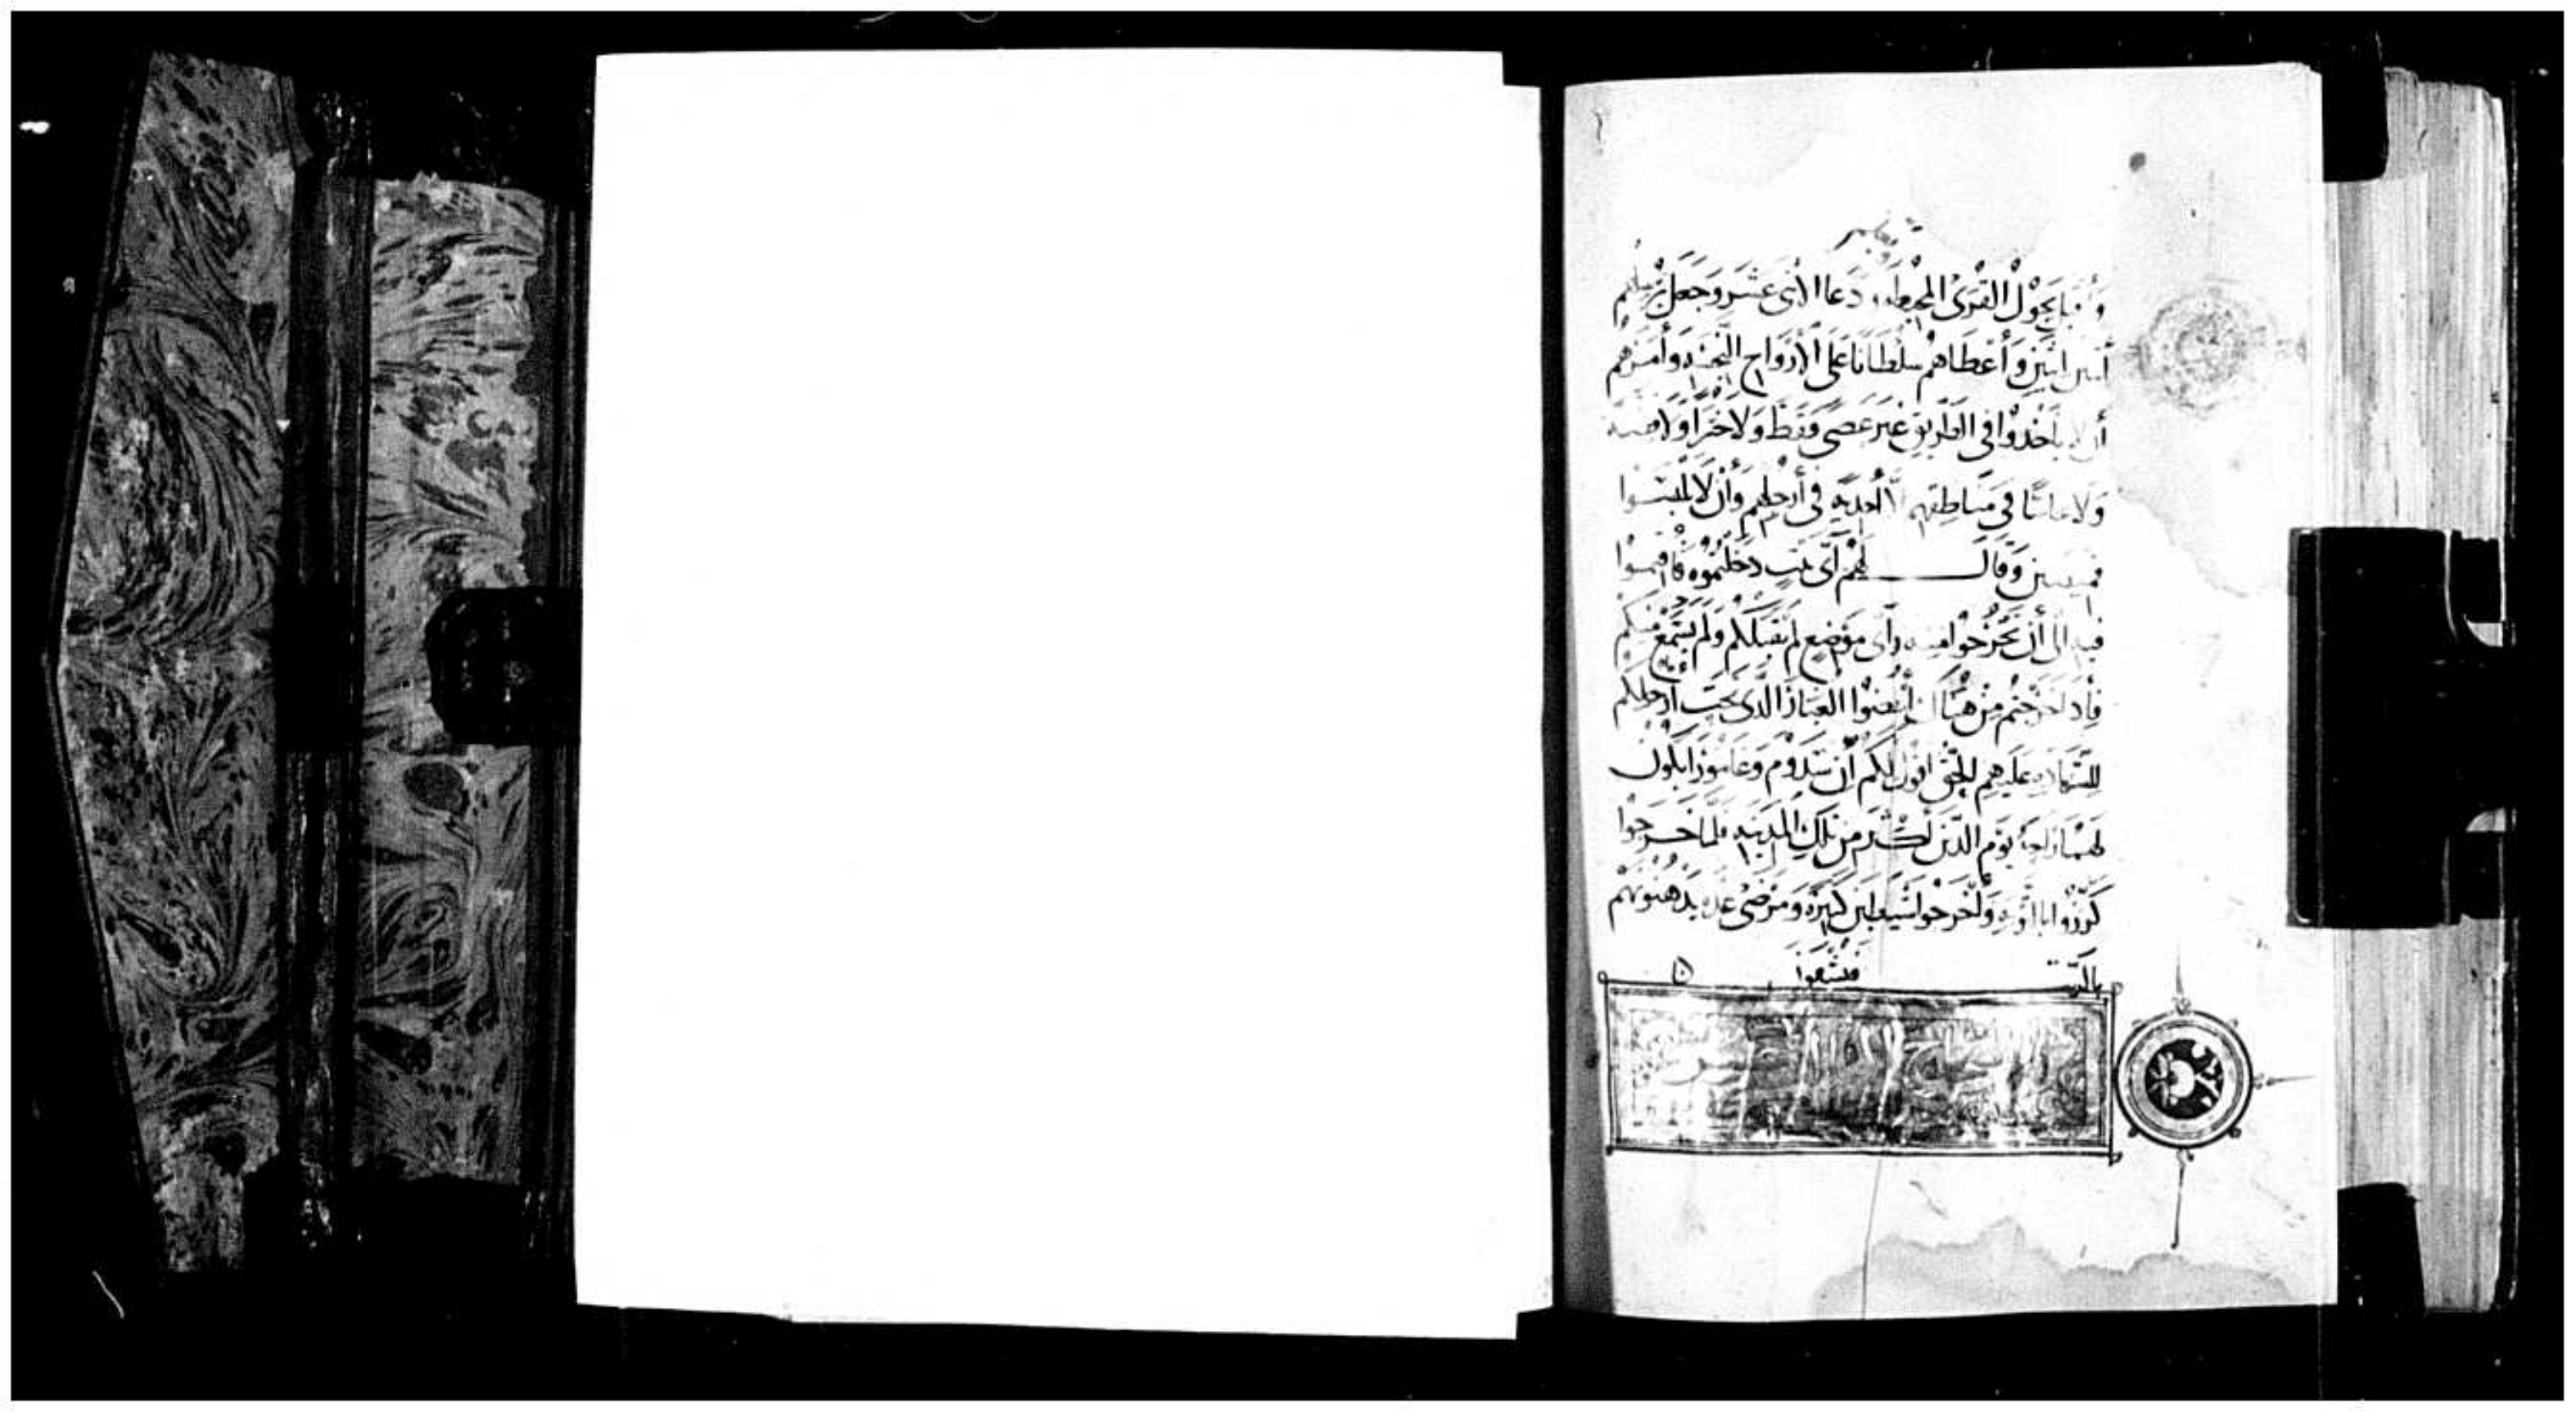 يجول القرى المحيطه دعا الاثنى عشر وجعل يرسلهم
اثنين اثنين وأعطاهم سلطانا على الأرواح النجسه وأمرهم
أن لا يأخذوا في الطريق غير عصى فقط ولا خبزا ولا
ولا نحاسا في مناطقهم الا أحديه في أرجلهم وأن لا يلبسوا
قميصين وقال لهم أى بيت دخلتموه فأقيموا
فيه الى أن تخرجوا منه وأى موضع لم يقبلكم ولم يسمع منكم
فإدا خرجتم من هناك أنفضوا الغبار الدى تحت أرجلكم
للشهاده عليهم الحق اقول لكم أن سدوم وعامورا يكون
لهما راحة يوم الدين أكثر من تلك المدينه فلما خرجوا
كرزوا بالتوبه وأخرجوا شياطين كثيرة ومرضى عده يدهنونهم
بالزيت فيشفوا